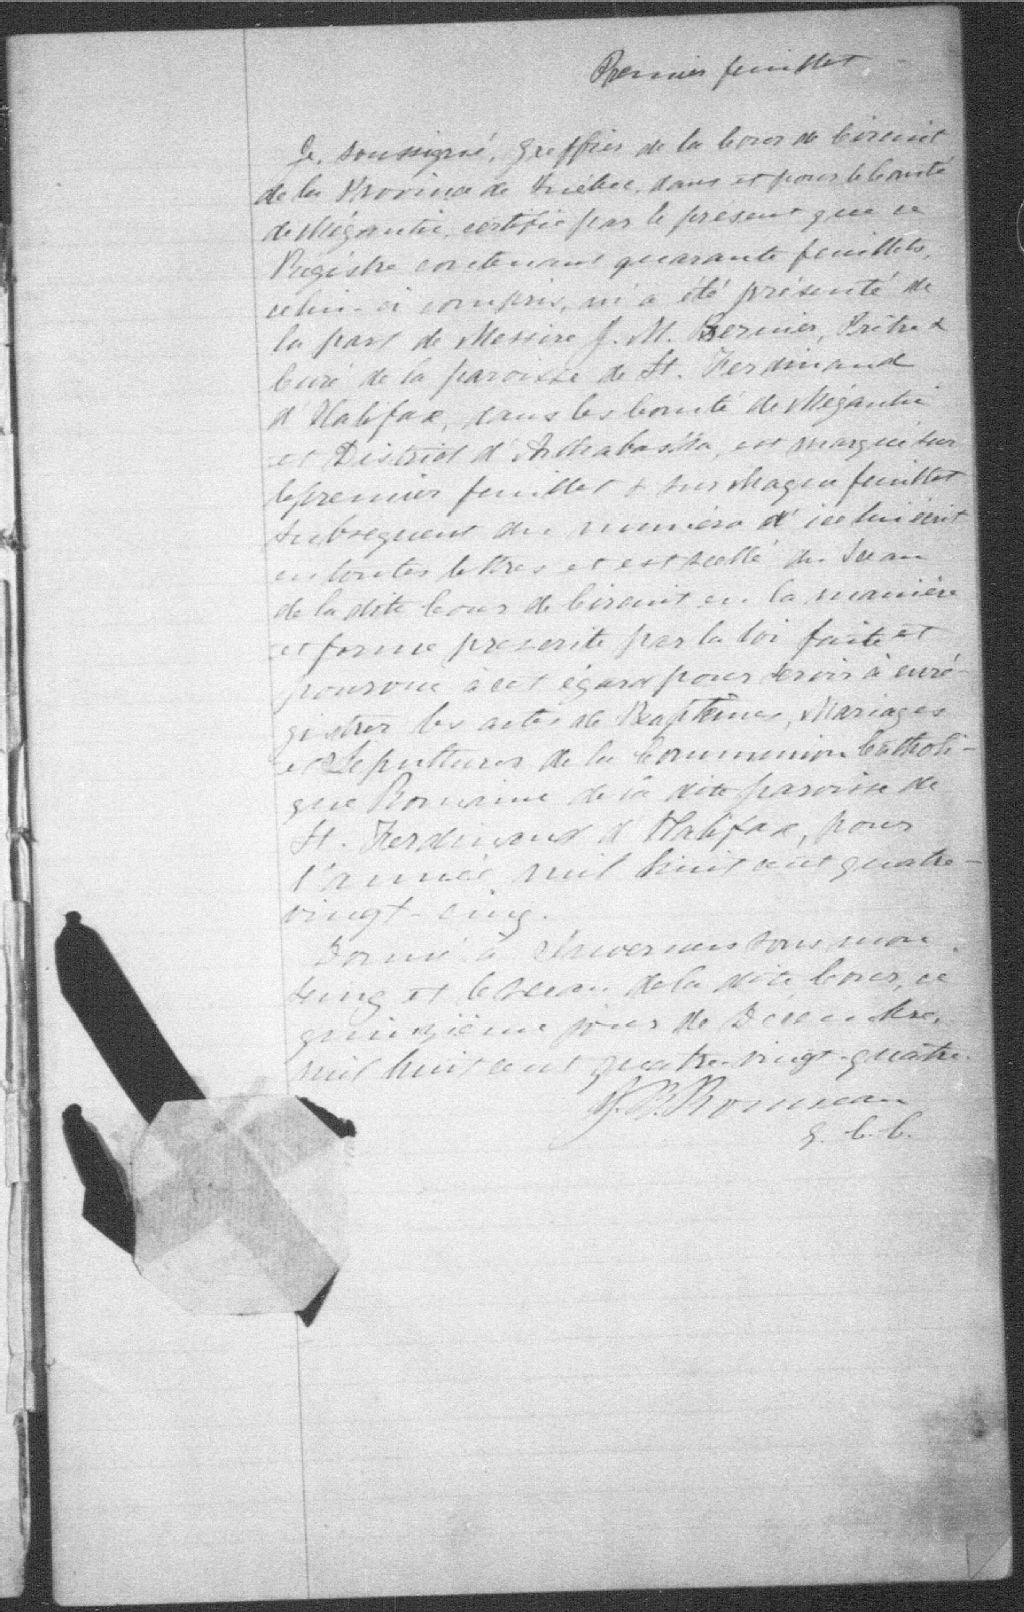 Premier feuillet
Je, soussigné, greffier de la Cour de Circuit
de la Province de Québec, dans et pour le Comté
de Mégantic, certifie par le présent que ce
Registre contenant quarante feuillets,
celui-ci compris, m'a été présenté de
la part de Messire J. M. Bernier, Prêtre &
Curé de la paroisse de St. Ferdinand
d'Halifax, dans les Comté de Mégantic
et District d'Arthabaska, est marqué sur
le premier feuillet & sur chaque feuillet
subséquent du numéro d'icelui écrit
en toutes lettres et est scellé du Sceau
de la dite Cour de Circuit en la manière
et forme prescrite par la loi faite et
pourvue à cet égard pour servir à enré-
gistrer les actes de Baptêmes, Mariages
et Sépultures de la Communion Catholi-
que Romaine de la dite paroisse de
St. Ferdinand d'Halifax, pour
l'année mil huit cent quatre-
vingt-cinq.
Donné à Inverness sous mon
seing et le sceau de la dite Cour, ce
quinzième jour de Décembre,
mil huit cent quatre-vingt-quatre.
Rousseau
G. C. C.